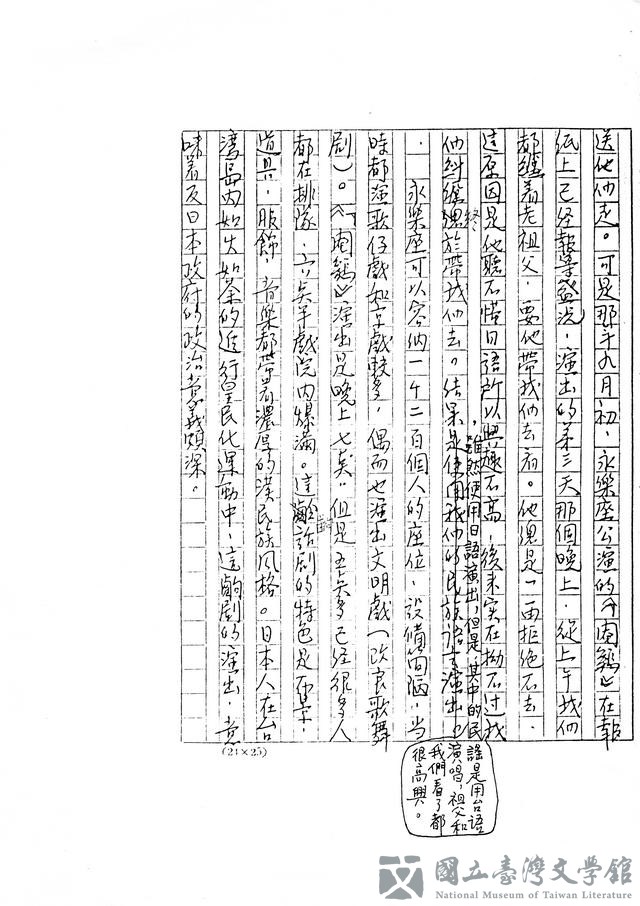 送他們走。可是那年九月初,永樂座公演的《閹鷄》在報
紙上已經報導盛況,演出的第三天那個晚上,從上午我們
都纏着老祖父,要他帶我們去看。他總是一再拒絕不去,
這原因是他聽不懂日語所以興趣不高,後來實在拗不過我
們糾纏終於帶我們去。結果是使用我們的民族語言演出。
,雖然使用日語演出,但是,其中的民
謠是用台語
演唱,祖父和
我們看了都
很高興。
永樂座可以容納一千二百個人的座位,設備簡陋,當
時都演歌仔戲和京戲較多,偶而也演出文明戲(改良歌舞
劇)。《閹鷄》演出是晚上七點。但是五點多已經很多人
都在排隊,六點半戲院內爆滿。這齣話劇的特色是布景,
道具,服飾,音樂都帶着濃厚的漢民族風格。日本人在台
灣島內如火如荼的進行皇民化運動中,這齣劇的演出,意
味着反日本政府的政治意義頗深。
(24×25)
國立臺灣文學館
National Museum of Taiwan Literature